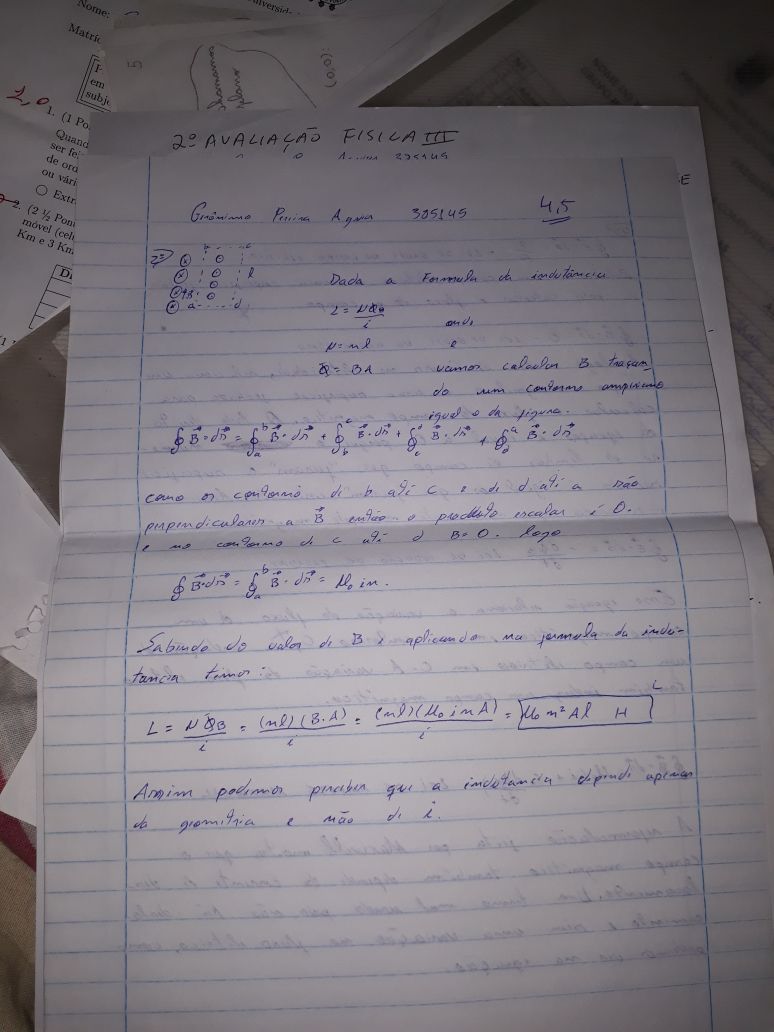 Nome:
Matríc
5
chamamos
plano
(0,0):
em
subje
2,0
1. (1 Po
Quand
ser fe
de ord
ou vári
Extr
2. (2 ½ Pon
móvel (cel
Km e 3 Km
2º AVALIAÇÃO FISICA III
385145
4,5
2º)
a d
l
Dada a Formula da indutância
L = NΦB / i onde
N = nl e
Φ = BA vamos calcular B traçan-
do um contorno amperiano
igual o da figura.
∮ B⃗·dr⃗ = ∮ₐᵇ B⃗·dr⃗ + ∮_b^c B⃗·dr⃗ + ∮_c^d B⃗·dr⃗ + ∮_d^a B⃗·dr⃗
como os contorno di b até c e di d até a são
perpendiculares a B⃗ então o produto escalar é 0.
e no contorno di c até d B=0. logo
∮ B⃗·dr⃗ = ∮ₐᵇ B⃗·dr⃗ = μ₀ in.
Sabindo do valor di B e aplicando na formula da indu-
tancia temos:
L = NΦB / i = (nl)(B·A) / i = (nl)(μ₀ inA) / i = μ₀ n² Al H
Assim podemos perceber qui a indutancia dipendi apenas
da giomitria e não di i.